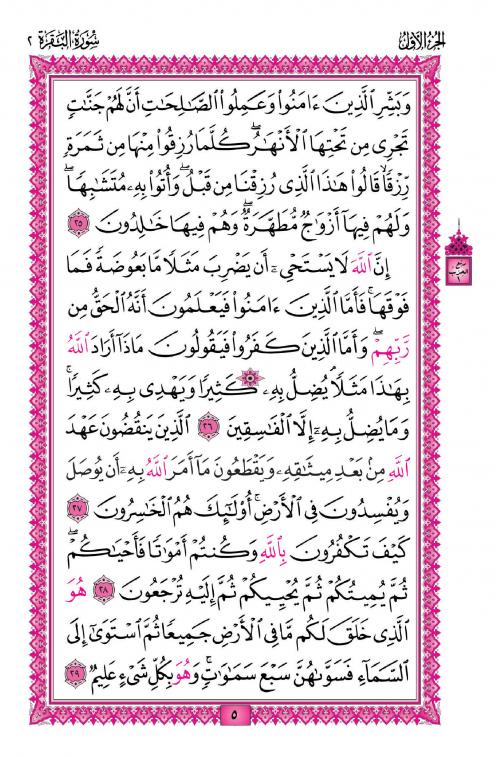 الجزء الأول
سورة البقرة ٢
وَبَشِّرِ ٱلَّذِينَ ءَامَنُوا۟ وَعَمِلُوا۟ ٱلصَّـٰلِحَـٰتِ أَنَّ لَهُمْ جَنَّـٰتٍ
تَجْرِى مِن تَحْتِهَا ٱلْأَنْهَـٰرُ ۖ كُلَّمَا رُزِقُوا۟ مِنْهَا مِن ثَمَرَةٍ
رِّزْقًا ۙ قَالُوا۟ هَـٰذَا ٱلَّذِى رُزِقْنَا مِن قَبْلُ ۖ وَأُتُوا۟ بِهِۦ مُتَشَـٰبِهًا ۖ
وَلَهُمْ فِيهَآ أَزْوَٰجٌ مُّطَهَّرَةٌ ۖ وَهُمْ فِيهَا خَـٰلِدُونَ ٢٥
إِنَّ ٱللَّهَ لَا يَسْتَحْىِۦٓ أَن يَضْرِبَ مَثَلًا مَّا بَعُوضَةً فَمَا
فَوْقَهَا ۚ فَأَمَّا ٱلَّذِينَ ءَامَنُوا۟ فَيَعْلَمُونَ أَنَّهُ ٱلْحَقُّ مِن
رَّبِّهِمْ ۖ وَأَمَّا ٱلَّذِينَ كَفَرُوا۟ فَيَقُولُونَ مَاذَآ أَرَادَ ٱللَّهُ
بِهَـٰذَا مَثَلًا ۘ يُضِلُّ بِهِۦ كَثِيرًا وَيَهْدِى بِهِۦ كَثِيرًا ۚ
وَمَا يُضِلُّ بِهِۦٓ إِلَّا ٱلْفَـٰسِقِينَ ٢٦ ٱلَّذِينَ يَنقُضُونَ عَهْدَ
ٱللَّهِ مِنۢ بَعْدِ مِيثَـٰقِهِۦ وَيَقْطَعُونَ مَآ أَمَرَ ٱللَّهُ بِهِۦٓ أَن يُوصَلَ
وَيُفْسِدُونَ فِى ٱلْأَرْضِ ۚ أُو۟لَـٰٓئِكَ هُمُ ٱلْخَـٰسِرُونَ ٢٧
كَيْفَ تَكْفُرُونَ بِٱللَّهِ وَكُنتُمْ أَمْوَٰتًا فَأَحْيَـٰكُمْ ۖ
ثُمَّ يُمِيتُكُمْ ثُمَّ يُحْيِيكُمْ ثُمَّ إِلَيْهِ تُرْجَعُونَ ٢٨ هُوَ
ٱلَّذِى خَلَقَ لَكُم مَّا فِى ٱلْأَرْضِ جَمِيعًا ثُمَّ ٱسْتَوَىٰٓ إِلَى
ٱلسَّمَآءِ فَسَوَّىٰهُنَّ سَبْعَ سَمَـٰوَٰتٍ ۚ وَهُوَ بِكُلِّ شَىْءٍ عَلِيمٌ ٢٩
٥